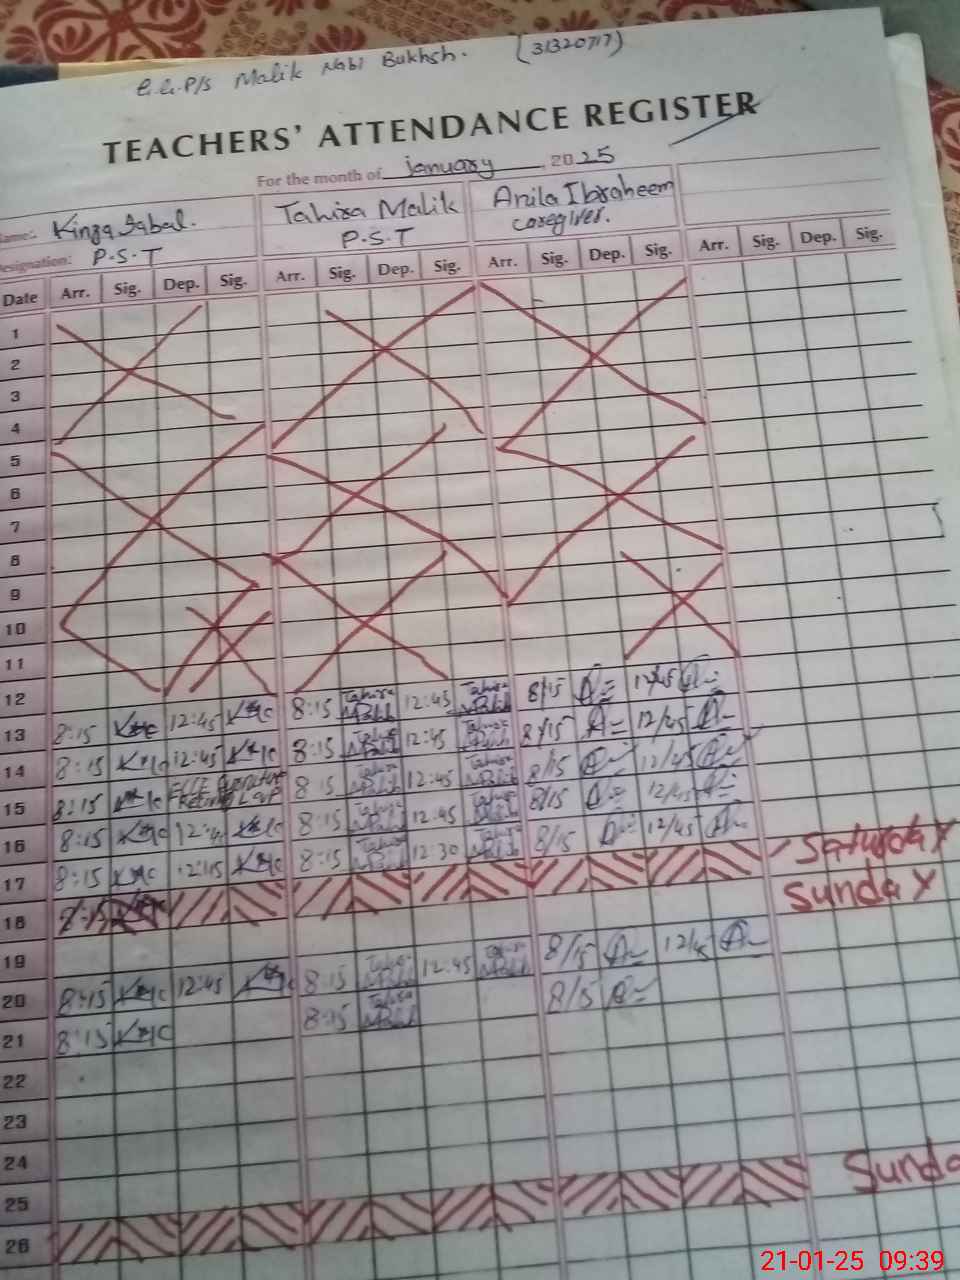 G.G.P/S Malik Nabi Bukhsh. (31320717)
TEACHERS' ATTENDANCE REGISTER
For the month of january 2025
Name: Kinza Iqbal. Tahira Malik Anila Ibraheem
Designation: P.S.T P.S.T caregiver.
Date Arr. Sig. Dep. Sig. Arr. Sig. Dep. Sig. Arr. Sig. Dep. Sig. Arr. Sig. Dep. Sig.
1
2
3
4
5
6
7
8
9
10
11
12
13 8:15 12:45 8:15 Tahira Malik 12:45 Tahira Malik 8/15 12/45
14 8:15 12:45 8:15 Tahira Malik 12:45 Tahira Malik 8/15 12/45
15 8:15 8:15 Tahira Malik 12:45 Tahira Malik 8/15 12/45
16 8:15 12:45 8:15 Tahira Malik 12:45 Tahira Malik 8/15 12/45
17 8:15 12:45 8:15 Tahira Malik 12:30 Tahira Malik 8/15 12/45
18 Saturday
19 Sunday
20 8:15 12:45 8:15 Tahira Malik 12:45 Tahira Malik 8/15 12/45
21 8:15 8:15 Tahira Malik 8/15
22
23
24
25
26 Sunda
21-01-25 09:39